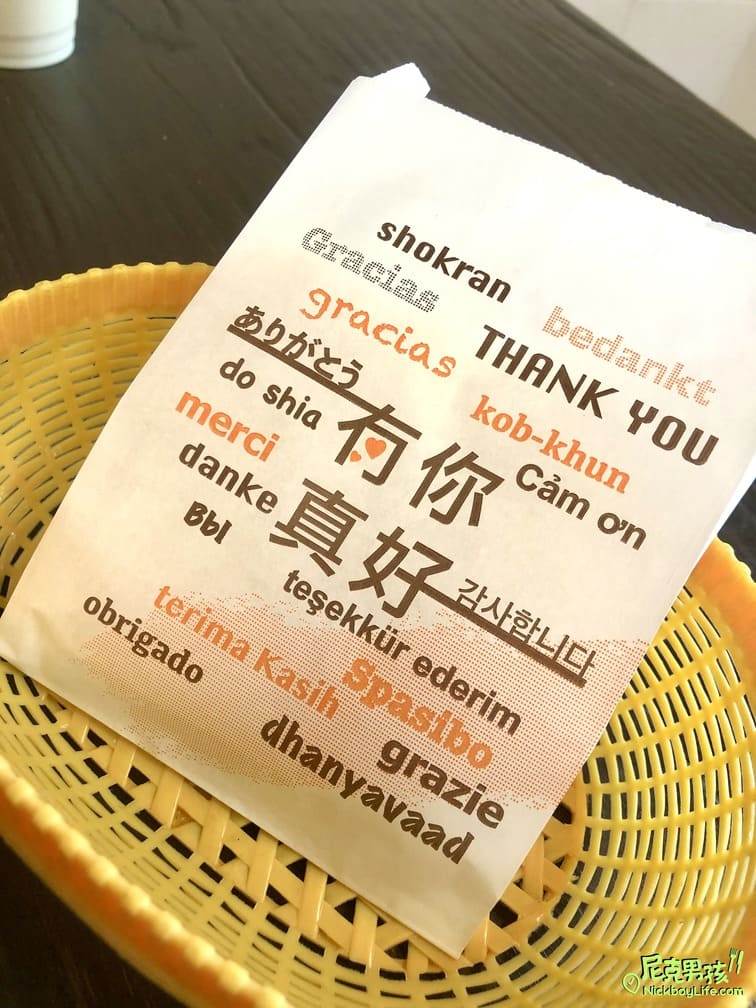 shokran
Gracias
gracias
bedankt
THANK YOU
ありがとう
kob-khun
do shia
有你
Cảm ơn
merci
danke
真好
BbI
감사합니다
teşekkür ederim
terima Kasih
obrigado
Spasibo
grazie
dhanyavaad
尼克男孩
NickboyLife.com